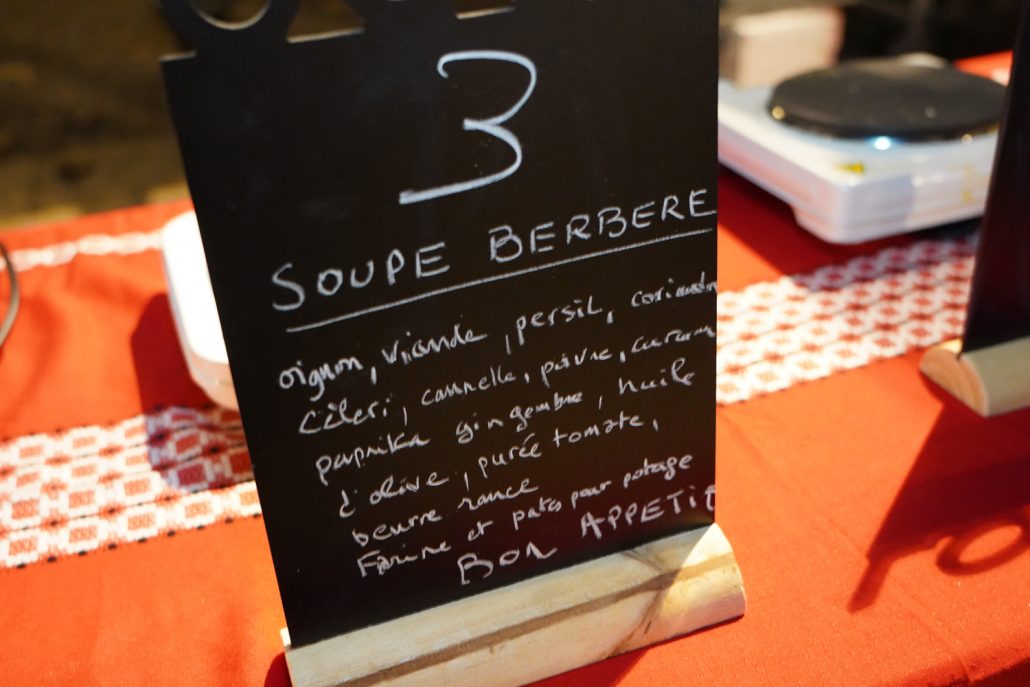 3
SOUPE BERBERE
oignon, viande, persil, coriandr
Céleri, cannelle, poivre, curcum
paprika gingembre, huile
d'olive, purée tomate,
beurre rance
Farine et pates pour potage
BON APPETIT